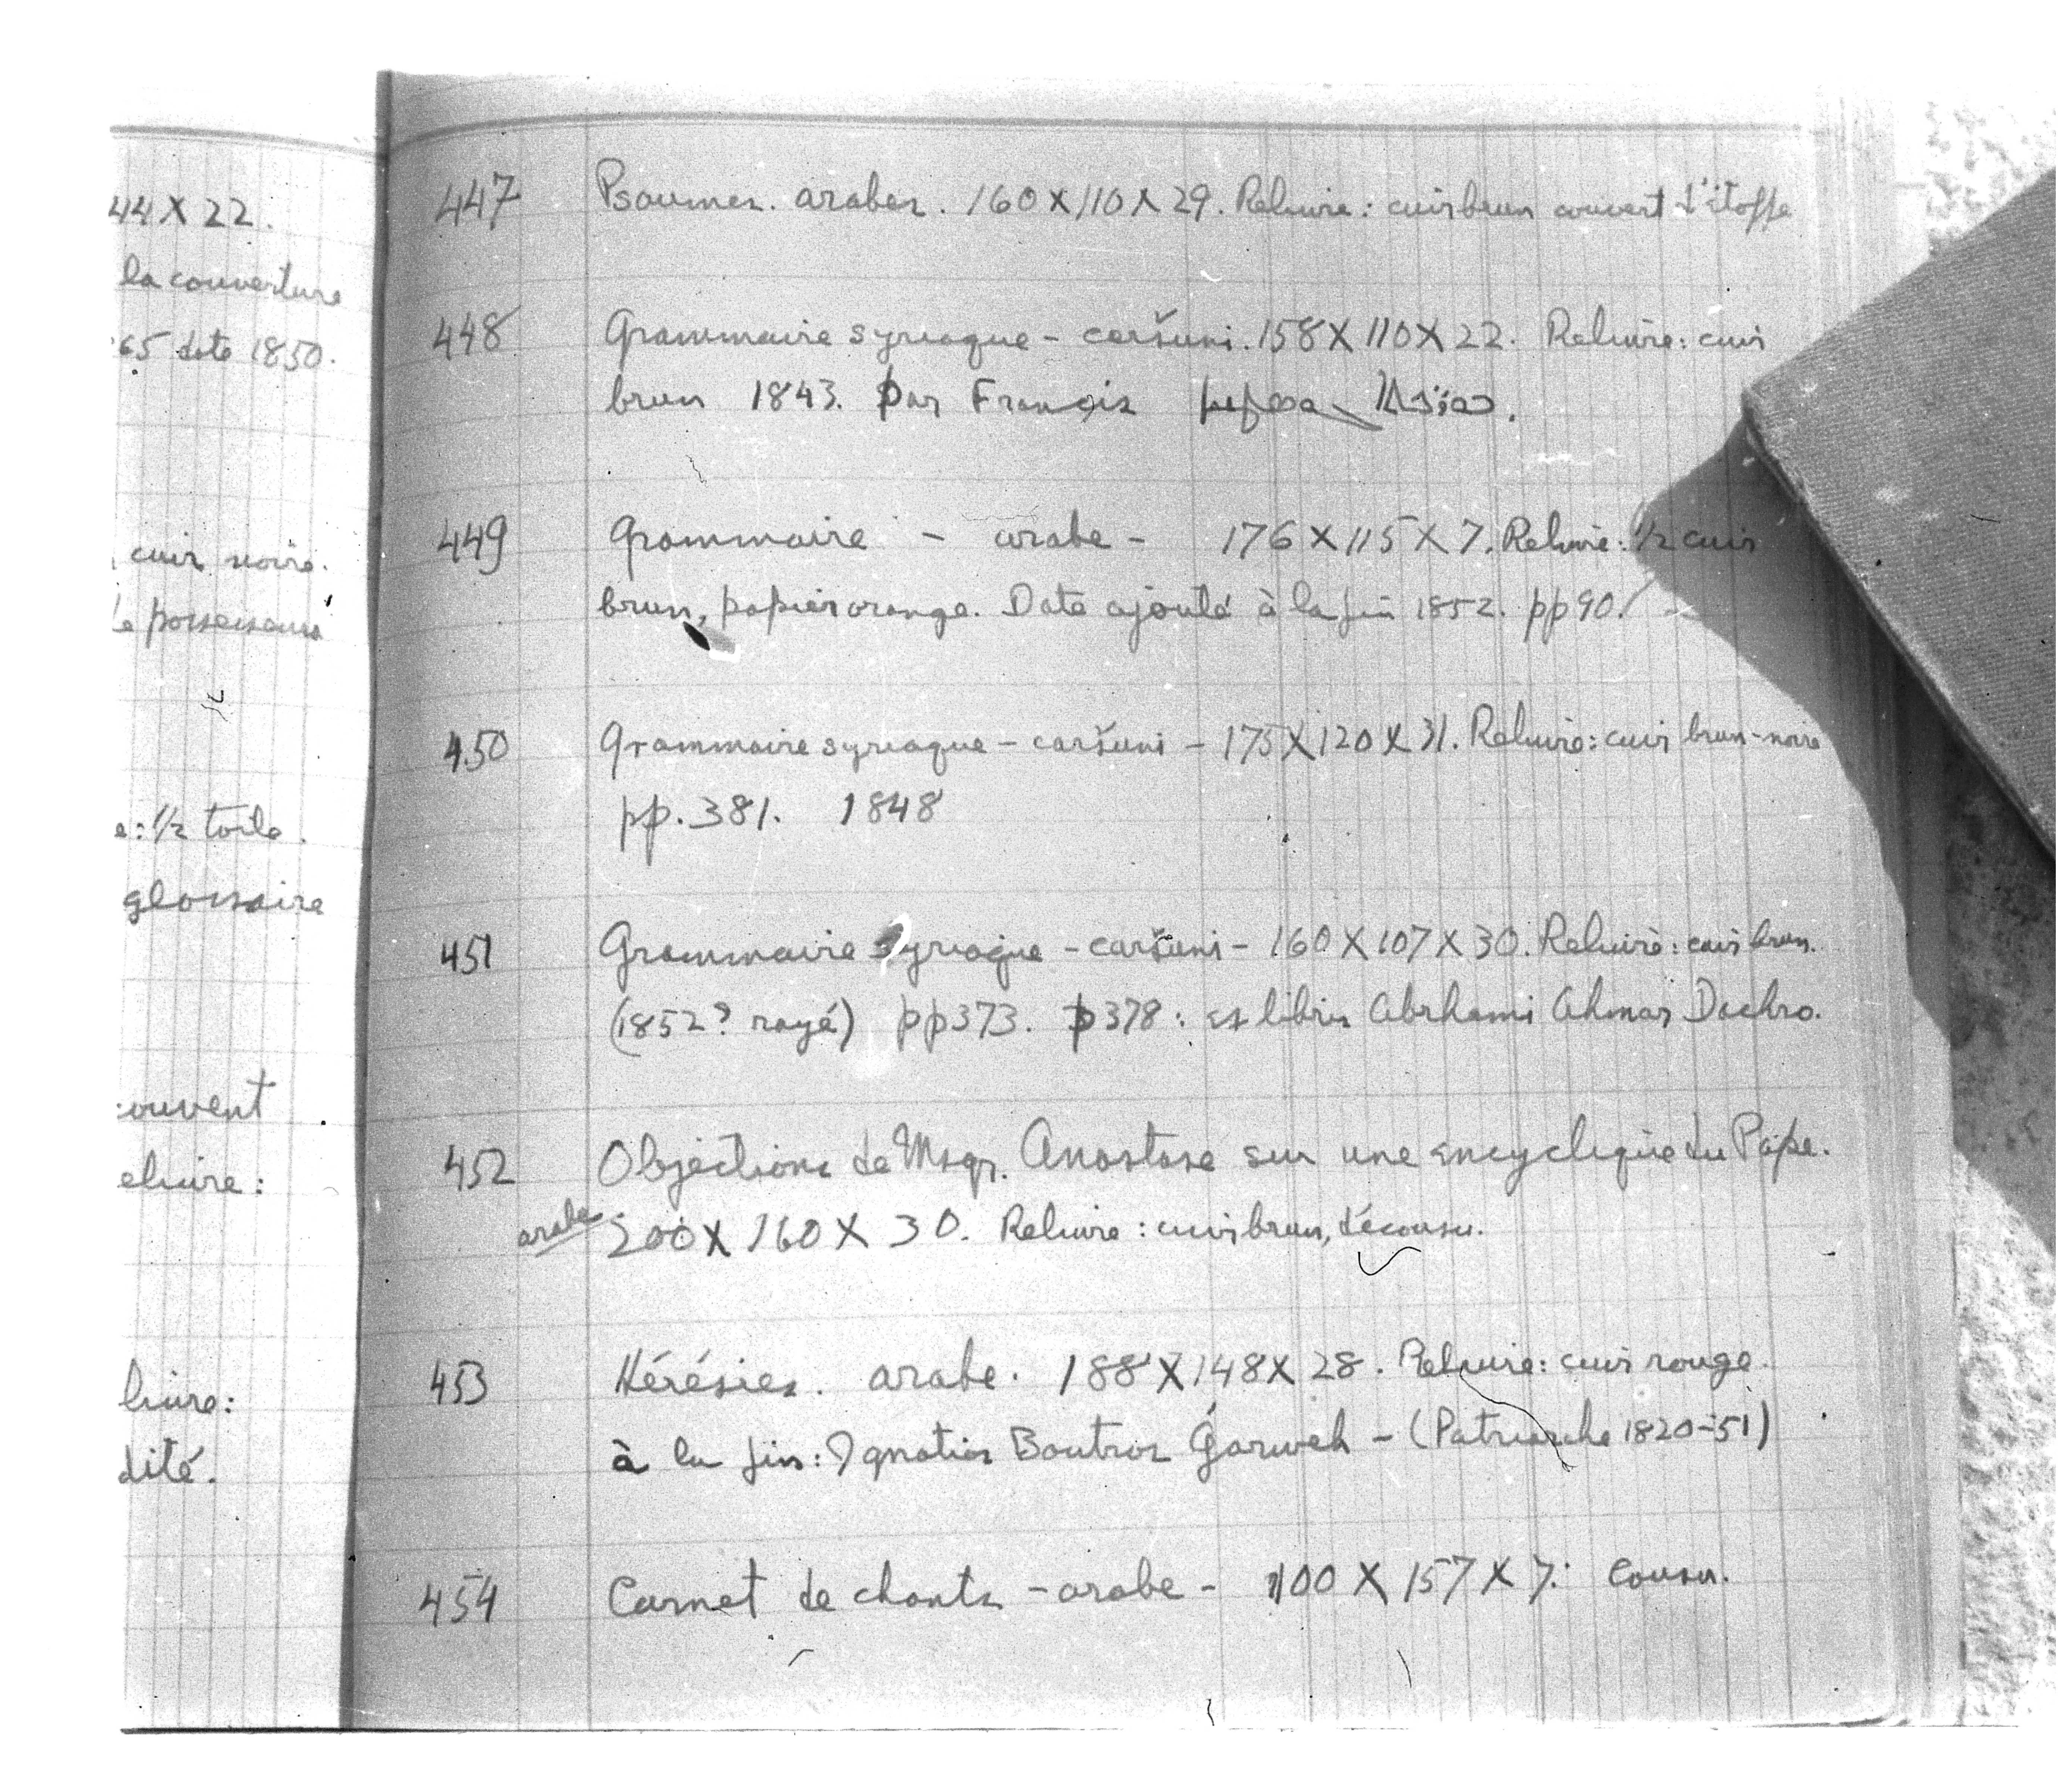 44 X 22.
la couverture
65 date 1850.
cuir noire.
possesseurs
e: 1/2 toile.
glossaire
ouvent
eliure:
liure:
dité.
447 Psaumes. arabes. 160 X 110 X 29. Reliure: cuir brun couvert d'étoffe
448 Grammaire syriaque - caršuni. 158 X 110 X 22. Reliure: cuir
brun 1843. Par François
449 Grammaire - arabe - 176 X 115 X 7. Reliure: 1/2 cuir
brun, papier orange. Date ajouté à la fin 1852. pp 90.
450 Grammaire syriaque - caršuni - 175 X 120 X 31. Reliure: cuir brun-noire
pp. 381. 1848
451 Grammaire syriaque - caršuni - 160 X 107 X 30. Reliure: cuir brun.
(1852? rayé) pp 373. p 378: ex libris Abrhami Ahmar Dachro.
452 Objections de Msgr. Anastase sur une encyclique du Pape.
arabe 200 X 160 X 30. Reliure: cuir brun, décousu.
453 Hérésies. arabe. 188 X 148 X 28. Reliure: cuir rouge.
à la fin: Ignatios Boutros Ǧarweh - (Patriarche 1820-51)
454 Carnet de chants - arabe - 100 X 157 X 7. Cousu.